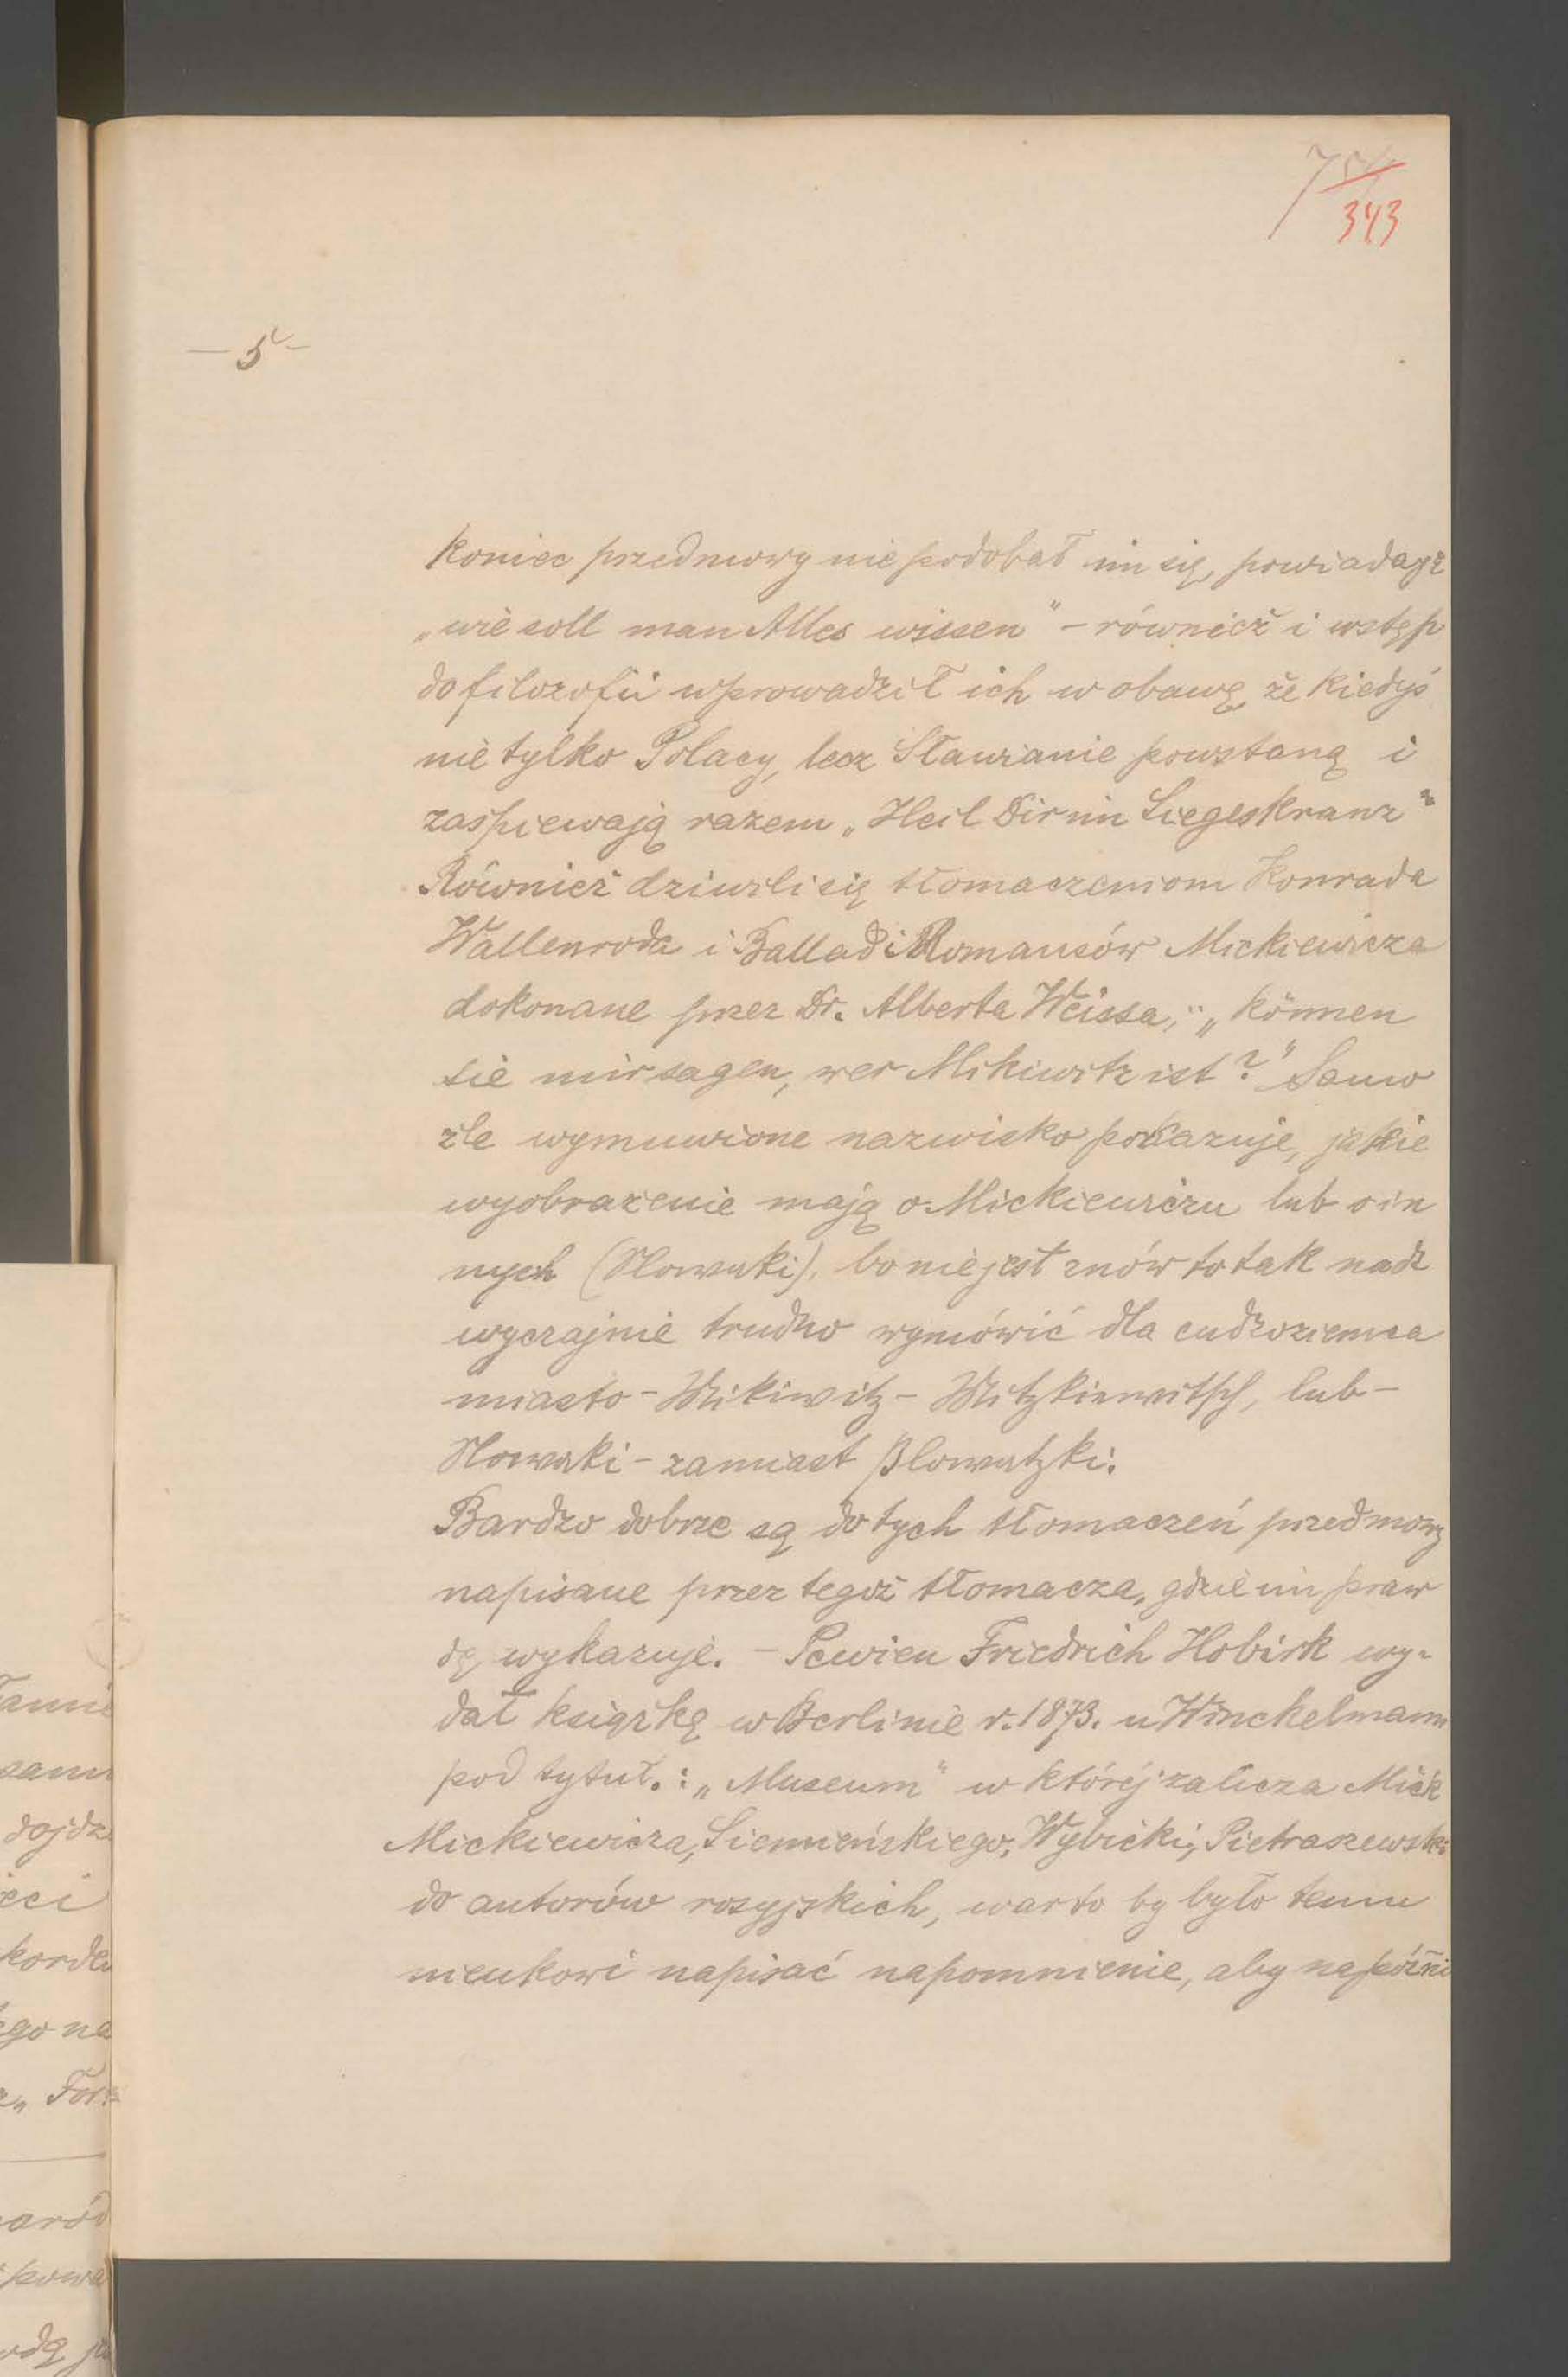 343
– 5 –
koniec przedmowy nie podobał im się, powiadając
„wie soll man Alles wissen" – również i wstęp
do filozofii wprowadził ich w obawę, że kiedyś
nie tylko Polacy, lecz Sławianie powstaną i
zaśpiewają razem „Heil Dir im Siegeskranz"
Również dziwili się tłomaczeniom Konrada
Wallenroda i Ballad i Romansów Mickiewicza
dokonane przez Dr. Alberta Weissa, „können
sie mir sagen, wer Mikiwitz ist?" Samo
źle wymuwione nazwisko pokazuje, jakie
wyobrażenie mają o Mickiewiczu lub o in
nych (Slowaki), bo nie jest znów to tak nadz
wyczajnie trudno wymówić dla cudzoziemca
miasto – Mikiwitz – Mitzkiewitsch, lub –
Slowaki – zamiast Slowatzki.
Bardzo dobrze są do tych tłomaczeń przedmowy
napisane przez tegoż tłomacza, gdzie im praw
dę wykazuje. – Pewien Friedrich Hobirk wy-
dał książkę w Berlinie r. 1873. u Winckelmann
pod tytuł.: „Museum" w której zalicza Mick
Mickiewicza, Siemieńskiego, Wybicki, Pietraszewski
do autorów rosyjskich, warto by było temu
nieukowi napisać napomnienie, aby na późni
ego na
„For